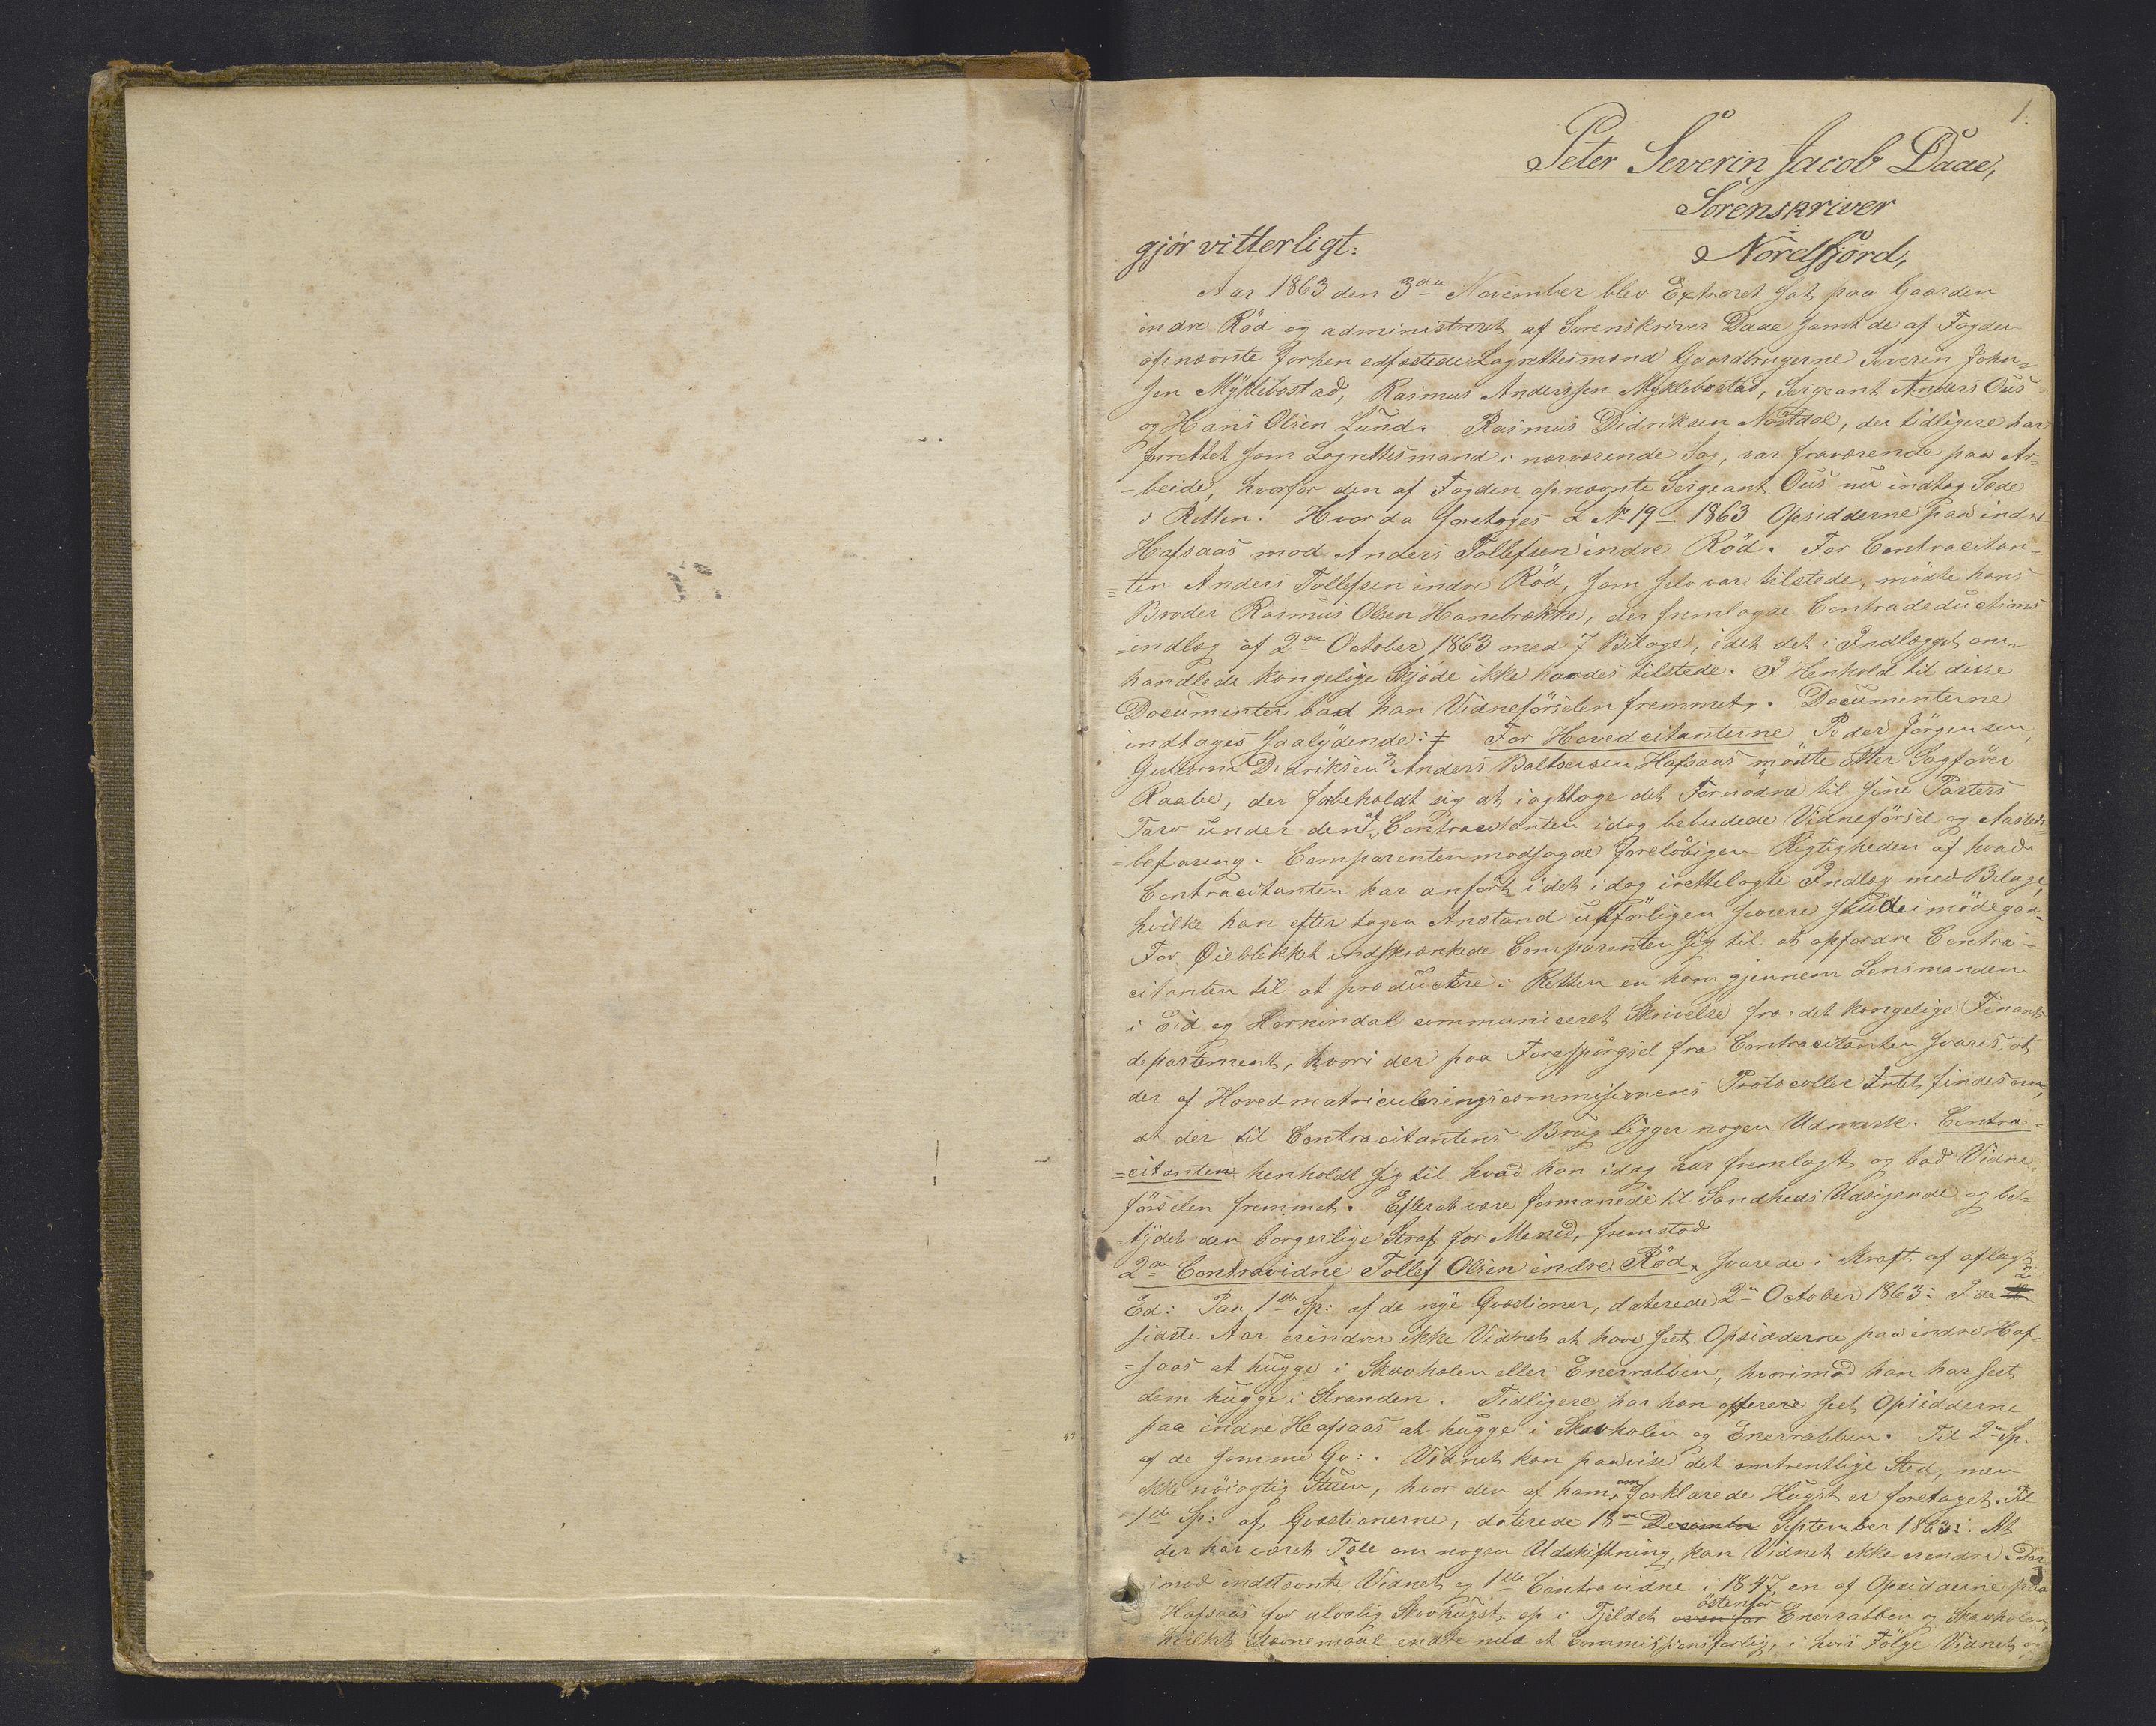 1.
Peter Severin Jacob Daae,
Sörenskriver
i
Nordfjord,
gjör vitterligt:
Aar 1863 den 3die November blev Extraret sat paa Gaarden
indre Röd og administreret af Sorenskriver Daae samt de af Fogden
opnævnte forhen edfæstede Lagrettesmænd Gaardbrugerne Severin John-
sen Myklebostad, Rasmus Anderssen Myklebostad, Sergeant Anders Ous
og Hans Olsen Lund. Rasmus Didriksen Nöstdal, der tidligere har
forrettet som Lagrettesmand i nærværende Sag, var fraværende paa Ar-
-beide, hvorfor den af Fogden opnævnte Sergeant Ous nu indtog Sæde
i Retten. Hvor da foretoges L No 19 - 1863 Opsidderne paa indre
Hafsaas mod Anders Tollefsen indre Röd. For Contracitan-
=ten Anders Tollefsen indre Röd, som selv var tilstede, mödte hans
Broder Rasmus Olsen Hanebrekke, der fremlagde Contradeductions-
-indlæg af 2den October 1863 med 7 Bilage, idet det i Indlægget om-
handlede kongelige Skjöde ikke havdes tilstede. I Henhold til disse
Documenter bad han Vidneförselen fremmet. Documenterne
indtages saalydende: ≠ For Hovedcitanterne Peder Jörgensen,
Guttorm Didriksen og Anders Baltsersen Hafsaas mödte atter Sagförer
Raabe, der forbeholdt sig at iagttage det Fornödne til sine Parters
Tarv under den af Contracitanten idag bebudede Vidneförsel og Aasteds-
-befaring. Comparenten modsagde foreløbigen Rigtigheden af hvad
Contracitanten har anfört i det idag irettelagte Indlæg med Bilage,
hvilke han efter tagen Anstand udförligen senere skulde imödegaa.
For Øieblikket indskrænkede Comparenten sig til at opfordre Contra-
citanten til at producere i Retten en ham gjennem Lensmanden
i Eid og Hornindal communiceret Skrivelse fra det kongelige Finants
departement, hvori der paa Forespörgsel fra Contracitanten svares, at
der af Hovedmatriculeringscommissionens Protocoller Intet findes om,
at der til Contracitantens Brug ligger nogen Udmark. Contra-
=citanten henholdt sig til hvad han idag har fremlagt og bad Vidne
förselen fremmet. Efterat være formanede til Sandheds Udsigende og be-
tydet den borgerlige Straf for Mened, fremstod
2det Contravidne Tollef Olsen indre Röd, svarede i Kraft af aflagt
Ed: Paa 1ste Sp: af de nye Qvæstioner, daterede 2den October 1863: I de 2
sidste Aar erindrer ikke Vidnet at have seet Opsidderne paa indre Haf-
=saas at hugge i Skavholen eller Enerrabben, hvorimod han har seet
dem hugge i Stranden. Tidligere har han oftere seet Opsidderne
paa indre Hafsaas at hugge i Skavholen og Enerrabben. Til 2det Sp.
af de samme Qv:. Vidnet kan paavise det omtrentlige Sted, men
ikke nöiagtig Stuen, hvor den af ham omforklarede Hugst er foretaget. Til
1ste Sp: af Qvæstionerne, daterede 18de December September 1863: At
der har været Tale om nogen Udskiftning, kan Vidnet ikke erindre. Der
imod indstevnte Vidnet og 1ste Contravidne i 1847 en af Opsidderne paa
Hafsaas for ulovlig Skovhugst op i Fjeldet ovenfor östenfor Enerrabben og Skavholen,
hvilket Stevnemaal endte med et Commissionsforlig, i hvis Fölge Vidnet og